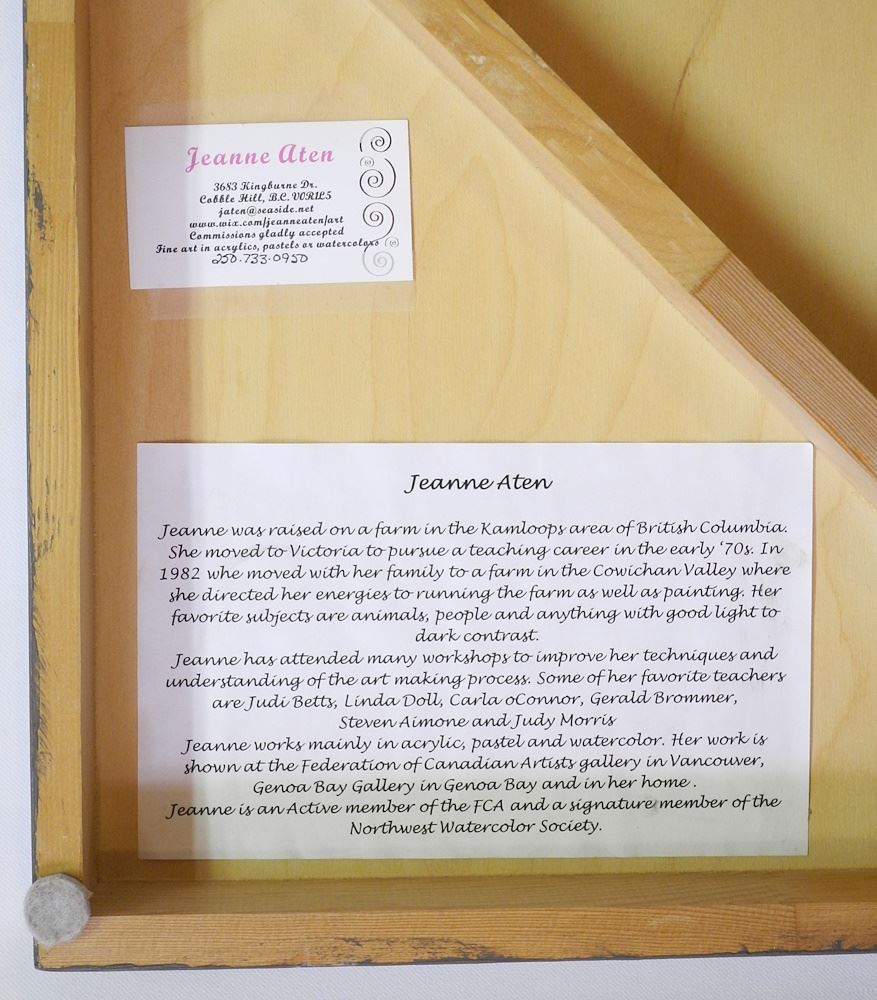 Jeanne Aten
3683 Kingburne Dr.
Cobble Hill, B.C. V0R1L5
jaten@seaside.net
www.wix.com/jeanneaten/art
Commissions gladly accepted
Fine art in acrylics, pastels or watercolors
250·733·0950
Jeanne Aten
Jeanne was raised on a farm in the Kamloops area of British Columbia.
She moved to Victoria to pursue a teaching career in the early ‘70s. In
1982 whe moved with her family to a farm in the Cowichan Valley where
she directed her energies to running the farm as well as painting. Her
favorite subjects are animals, people and anything with good light to
dark contrast.
Jeanne has attended many workshops to improve her techniques and
understanding of the art making process. Some of her favorite teachers
are Judi Betts, Linda Doll, Carla oConnor, Gerald Brommer,
Steven Aimone and Judy Morris
Jeanne works mainly in acrylic, pastel and watercolor. Her work is
shown at the Federation of Canadian Artists gallery in Vancouver,
Genoa Bay Gallery in Genoa Bay and in her home .
Jeanne is an Active member of the FCA and a signature member of the
Northwest Watercolor Society.